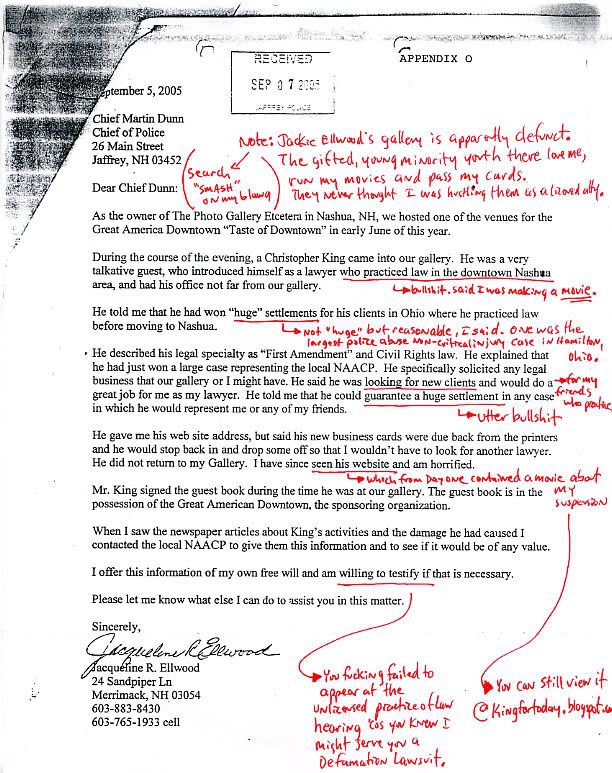 RECEIVED
SEP 07 2005
JAFFREY POLICE
APPENDIX O
ptember 5, 2005
Chief Martin Dunn
Chief of Police
26 Main Street
Jaffrey, NH 03452
Dear Chief Dunn:
Note: Jackie Ellwood's gallery is apparently defunct.
The gifted, young minority youth there love me,
run my movies and pass my cards.
They never thought I was hustling them as a licensed atty.
Search
"SMASH"
on my blawg
As the owner of The Photo Gallery Etcetera in Nashua, NH, we hosted one of the venues for the
Great America Downtown “Taste of Downtown” in early June of this year.
During the course of the evening, a Christopher King came into our gallery. He was a very
talkative guest, who introduced himself as a lawyer who practiced law in the downtown Nashua
area, and had his office not far from our gallery.
bullshit. said I was making a movie.
He told me that he had won “huge” settlements for his clients in Ohio where he practiced law
before moving to Nashua.
Not "huge" but reasonable, I said. One was the
largest police abuse non-critical injury case in Hamilton,
Ohio.
He described his legal specialty as “First Amendment” and Civil Rights law. He explained that
he had just won a large case representing the local NAACP. He specifically solicited any legal
business that our gallery or I might have. He said he was looking for new clients and would do a
great job for me as my lawyer. He told me that he could guarantee a huge settlement in any case
in which he would represent me or any of my friends.
for my
friends
who practice
utter bullshit
He gave me his web site address, but said his new business cards were due back from the printers
and he would stop back in and drop some off so that I wouldn’t have to look for another lawyer.
He did not return to my Gallery. I have since seen his website and am horrified.
which from Day one contained a movie about
my
suspension
Mr. King signed the guest book during the time he was at our gallery. The guest book is in the
possession of the Great American Downtown, the sponsoring organization.
When I saw the newspaper articles about King’s activities and the damage he had caused I
contacted the local NAACP to give them this information and to see if it would be of any value.
I offer this information of my own free will and am willing to testify if that is necessary.
Please let me know what else I can do to assist you in this matter.
Sincerely,
Jacqueline R Ellwood
Jacqueline R. Ellwood
24 Sandpiper Ln
Merrimack, NH 03054
603-883-8430
603-765-1933 cell
You fucking failed to
appear at the
unlicensed practice of law
hearing 'cos you knew I
might serve you a
Defamation Lawsuit.
You can still view it
@ Kingfortoday.blogspot.co